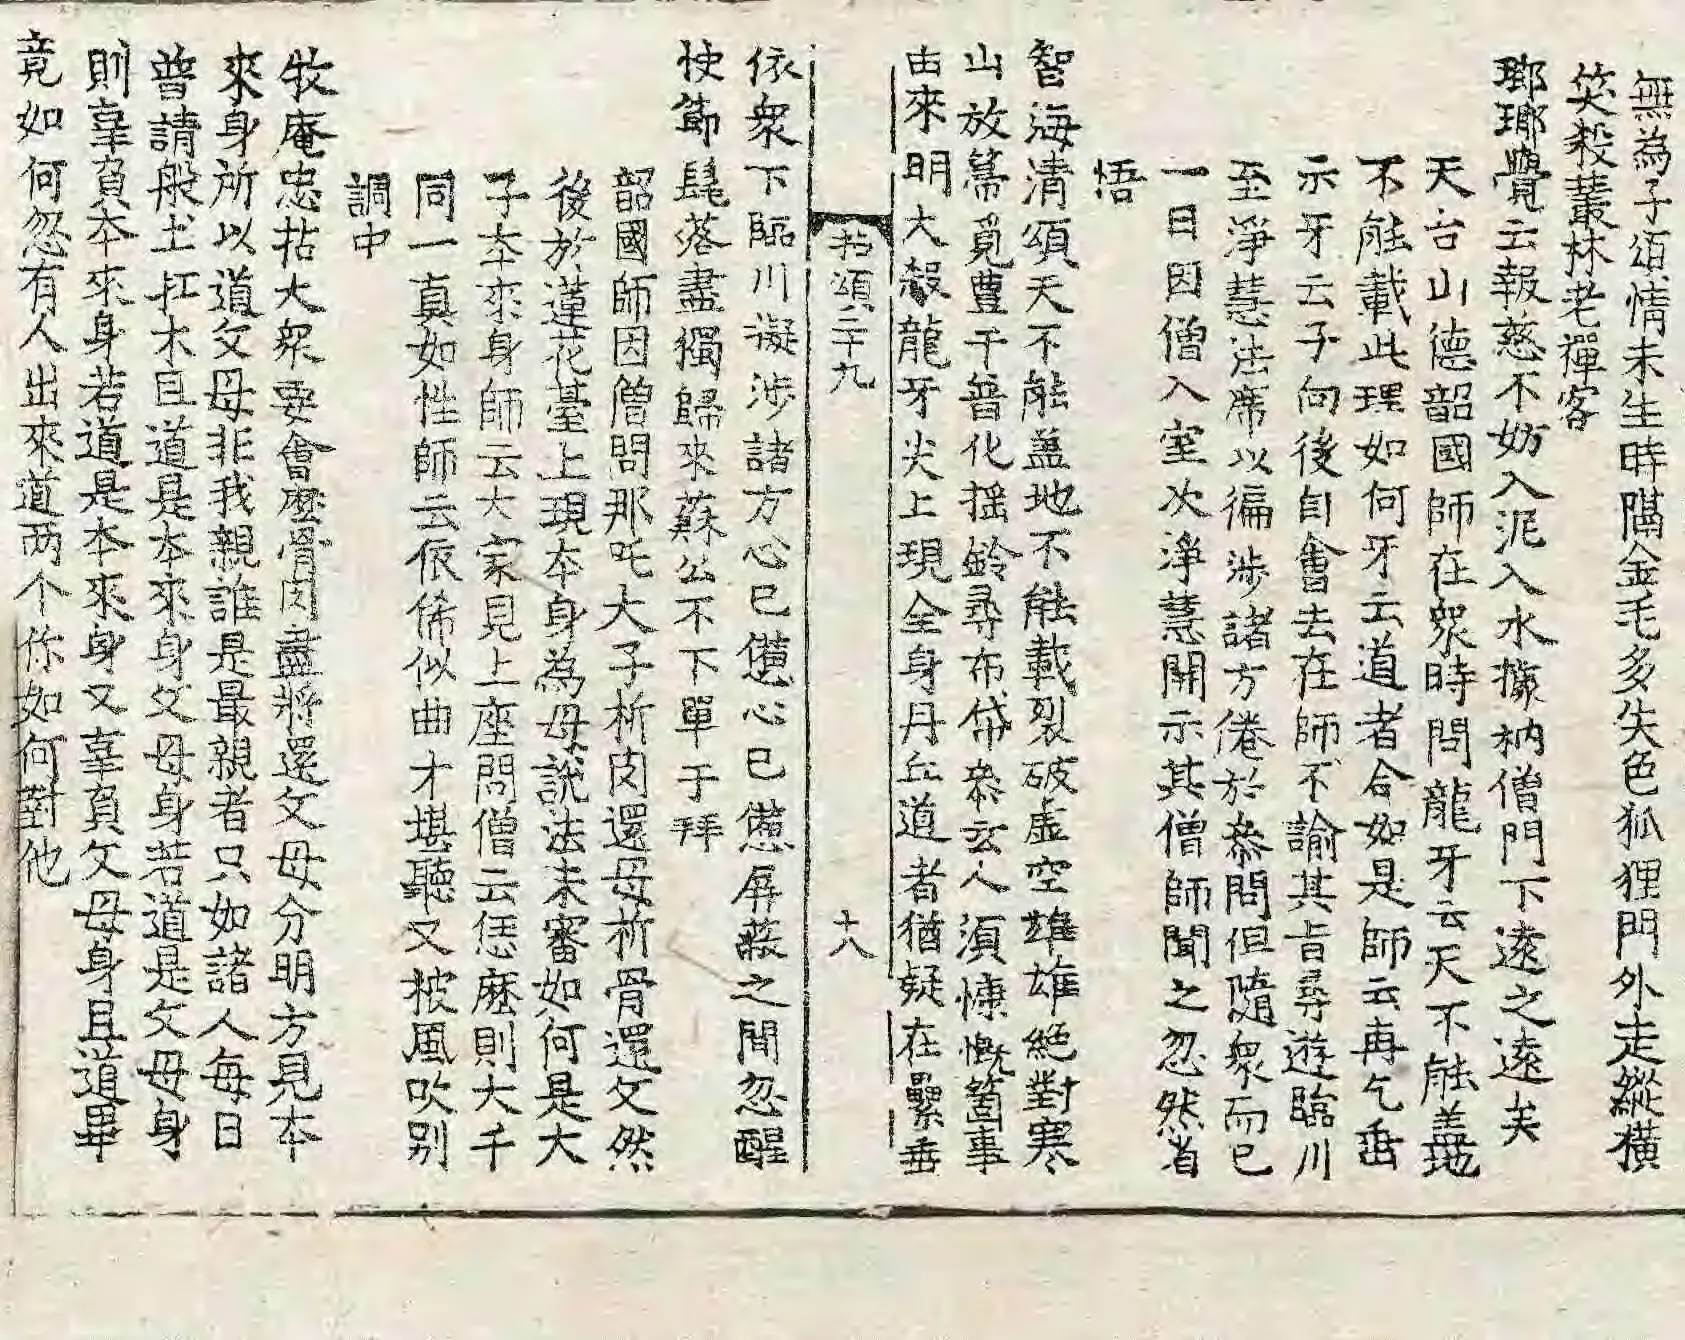 無為子頌情未生時隔金毛多失色狐狸門外走縱橫
笑殺叢林老禪客
瑯瑘覺云報慈不妨入泥入水據衲僧門下遠之遠矣
天台山德韶國師在衆時問龍牙云天不能蓋地
不能載此理如何牙云道者合如是師云再乞垂
示牙云子向後自會去在師不諭其旨尋遊臨川
至淨慧法席以徧涉諸方倦於叅問但隨衆而已
一日因僧入室次淨慧開示其僧師聞之忽然省
悟
智海清頌天不能蓋地不能載裂破虛空雄雄絕對寒
山放箒覓豊干普化揺鈴尋布袋叅玄人須慷慨箇事
由來明大殺龍牙尖上現全身丹丘道者猶疑在累垂
拈頌二十九 十八
依衆下臨川凝涉諸方心已憊心已憊屏蔽之間忽醒
快節旄落盡獨歸來蘇公不下單于拜
韶國師因僧問那吒大子析肉還母析骨還父然
後於蓮花臺上現本身為母說法未審如何是大
子本來身師云大家見上座問僧云恁麽則大千
同一真如性師云依俙似曲才堪聽又被風吹别
調中
牧庵忠拈大衆要會麽骨肉盡將還父母分明方見本
來身所以道父母非我親誰是最親者只如諸人每日
普請般土扛木且道是本來身父母身若道是父母身
則辜負本來身若道是本來身又辜負父母身且道畢
竟如何忽有人出來道两个你如何對他